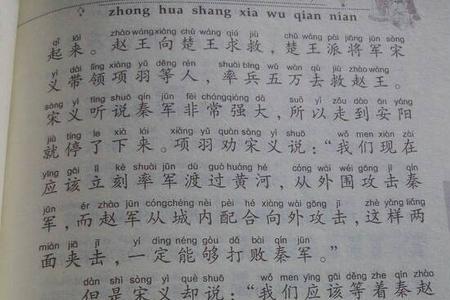 zhong hua shang xia wu qian nian
qǐ lái zhào wáng xiàng chǔ wáng qiú jiù chǔ wáng pài jiāng jūn sòng
起来。赵王向楚王求救，楚王派将军宋
yì dài lǐng xiàng yǔ děng rén shuài bīng wǔ wàn qù jiù zhào wáng
义带领项羽等人，率兵五万去救赵王。
sòng yì tīng shuō qín jūn fēi cháng qiáng dà suǒ yǐ zǒu dào ān yáng
宋义听说秦军非常强大，所以走到安阳
jiù tíng le xià lái xiàng yǔ quàn sòng yì shuō wǒ men xiàn zài
就停了下来。项羽劝宋义说：“我们现在
yīng gāi lì kè shuài jūn dù guò huáng hé cóng wài wéi gōng jī qín
应该立刻率军渡过黄河，从外围攻击秦
jūn ér zhào jūn cóng chéng nèi pèi hé xiàng wài gōng jī zhè yàng liǎng
军，而赵军从城内配合向外攻击，这样两
miàn jiā jī yí dìng néng gòu dǎ bài qín jūn
面夹击，一定能够打败秦军。”
dàn shì sòng yì què shuō wǒ men yīng gāi děng zhe qín zhào
但是宋义却说：“我们应该等着秦赵